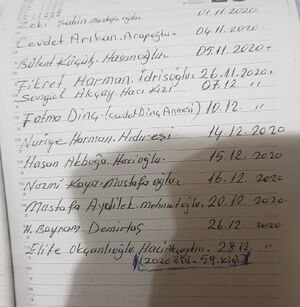 Zeki Şahin Mustafa oğlu 01.11.2020
Cevdet Arıkan. Arapoğlu 04.11.2020
Bülent Küçük. Hasanoğlu 05.11.2020
Fikret Harman. İdrisoğlu 26.11.2020
Songül Akçay Hacı Kızı 07.12 "
Fatma Dinç (Cevdet Dinç Annesi) 10.12. "
Nuriye Harman. Hıdır eşi 14.12.2020
Hasan Akboğa. Hacıoğlu 15.12.2020
Nazmi Kaya. Mustafaoğlu 16.12.2020
Mustafa Aydilek. mehmetoğlu 20.12.2020
H. Bayram Demirtaş 26.12 2020
Elife Okçanlıoğlu 28.12. "
(2020 59. Kişi)